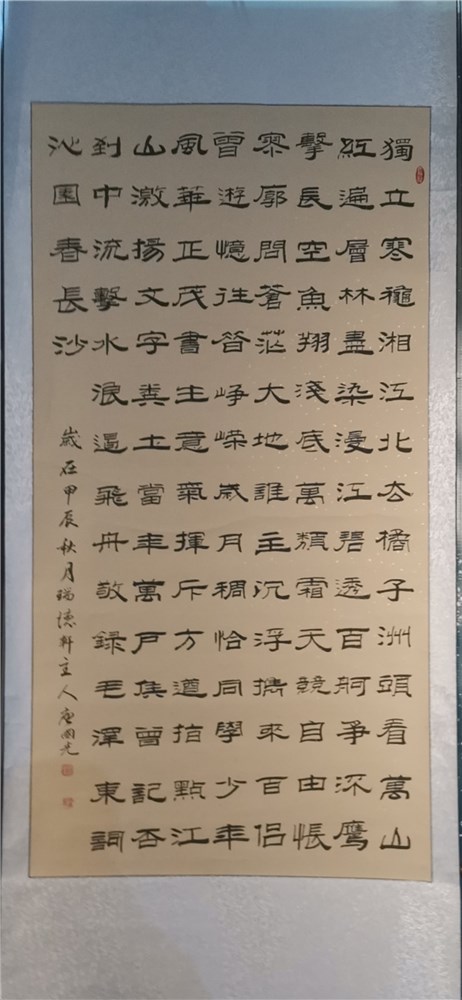 獨立寒龝湘江北去橘子洲頭看萬山
紅遍層林盡染漫江碧透百舸爭流鷹
擊長空魚翔淺底萬類霜天競自由悵
寥廓問蒼茫大地誰主沉浮攜來百侶
曾遊憶往昔崢嶸歲月稠恰同學少年
風華正茂書生意氣揮斥方遒指點江
山激揚文字糞土當年萬戶侯曾記否
到中流擊水浪遏飛舟敬録毛澤東詞
沁園春長沙
歲在甲辰秋月瑞德軒主人唐国光